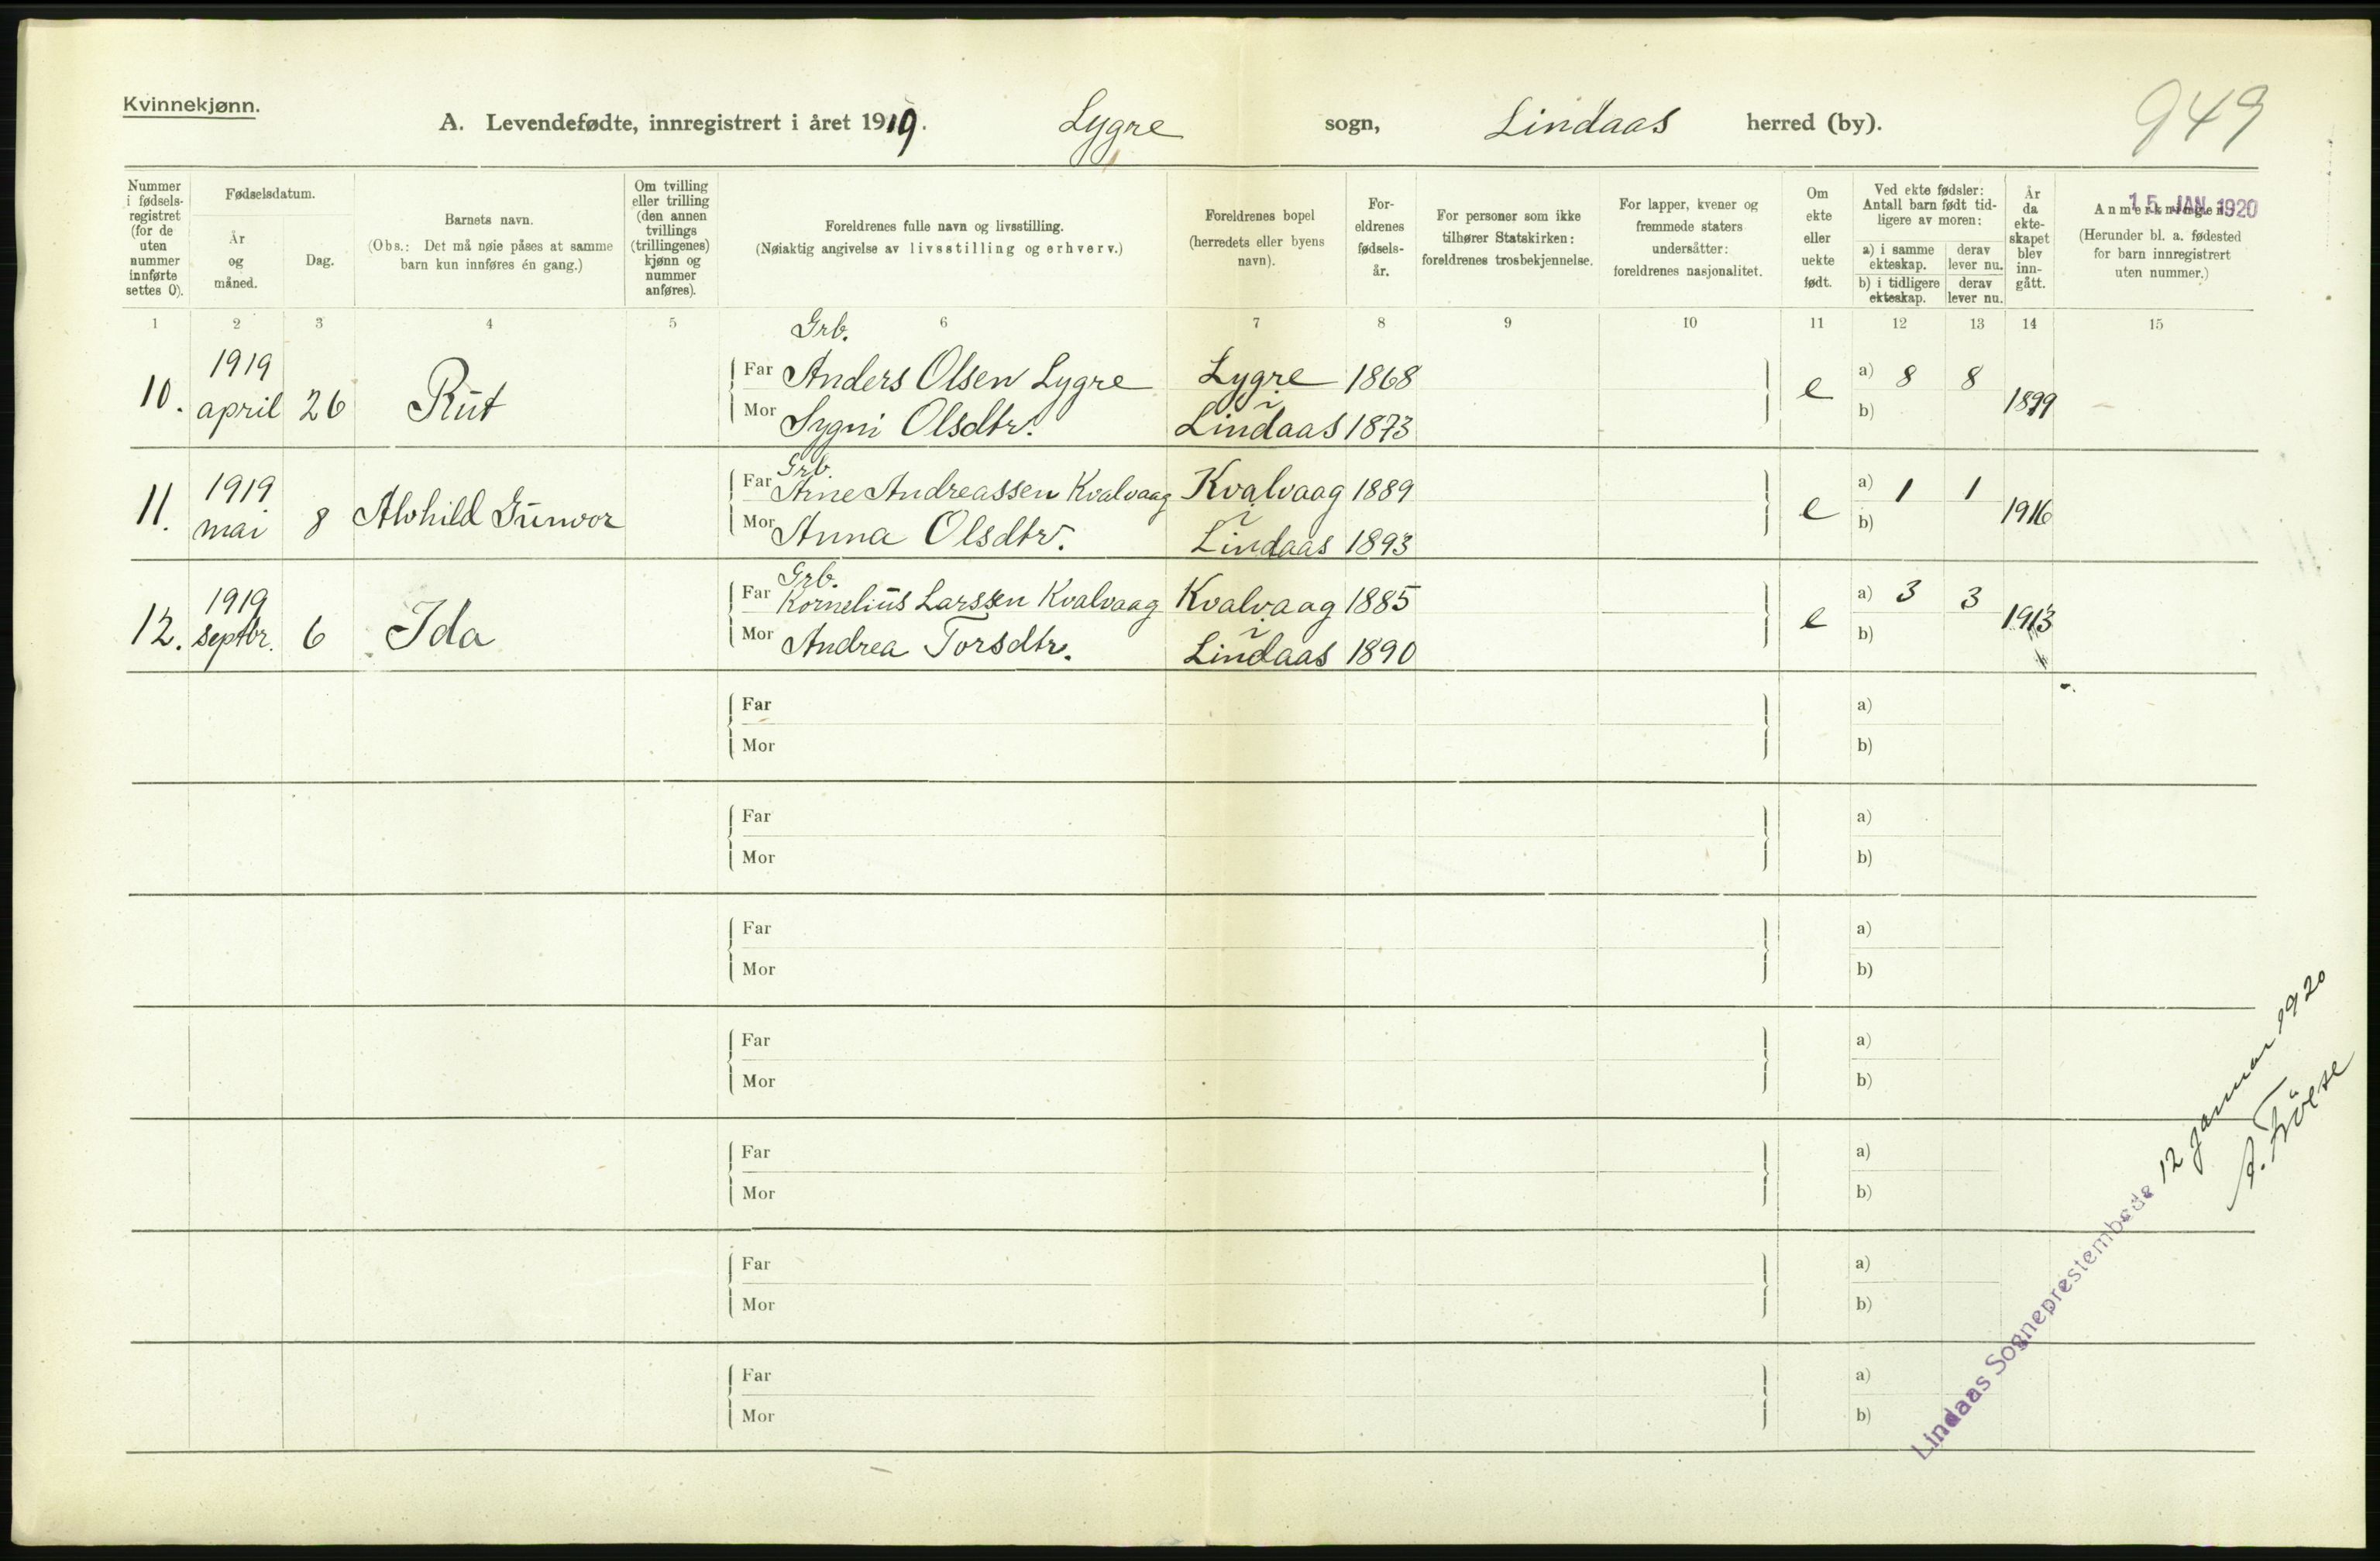 Kvinnekjønn.
A. Levendefødte, innregistrert i året 1919. Lygre sogn, Lindaas herred (by). 949
15 JAN 1920
Nummer i fødsels-registret (for de uten nummer innførte settes 0).
Fødselsdatum.
År og måned.
Dag.
Barnets navn.
(Obs.: Det må nøie påses at samme barn kun innføres én gang.)
Om tvilling eller trilling (den annen tvillings (trillingenes) kjønn og nummer anføres).
Foreldrenes fulle navn og livsstilling.
(Nøiaktig angivelse av livsstilling og erhverv.)
Foreldrenes bopel (herredets eller byens navn).
For-eldrenes fødsels-år.
For personer som ikke tilhører Statskirken: foreldrenes trosbekjennelse.
For lapper, kvener og fremmede staters undersåtter: foreldrenes nasjonalitet.
Om ekte eller uekte født.
Ved ekte fødsler: Antall barn født tid-ligere av moren:
a) i samme ekteskap. derav lever nu.
b) i tidligere ekteskap. derav lever nu.
År da ekte-skapet blev inn-gått.
Anmerkninger.
(Herunder bl. a. fødested for barn innregistrert uten nummer.)
1 2 3 4 5 6 7 8 9 10 11 12 13 14 15
Grb.
1919 Far Anders Olsen Lygre Lygre 1868 a) 8 8
10. april 26 Rut e 1899
Mor Sygni Olsdtr. i Lindaas 1873 b)
Grb.
1919 Far Arne Andreassen Kvalvaag Kvalvaag 1889 a) 1 1
11. mai 8 Alvhild Gunvor e 1916
Mor Anna Olsdtr. i Lindaas 1893 b)
Grb.
1919 Far Kornelius Larssen Kvalvaag Kvalvaag 1885 a) 3 3
12. septbr. 6 Ida e 1913
Mor Andrea Torsdtr. i Lindaas 1890 b)
Far a)
Mor b)
Far a)
Mor b)
Far a)
Mor b)
Far a)
Mor b)
Far a)
Mor b)
Far a)
Mor b)
Far a)
Mor b)
Lindaas Sogneprestembede 12 januar 1920